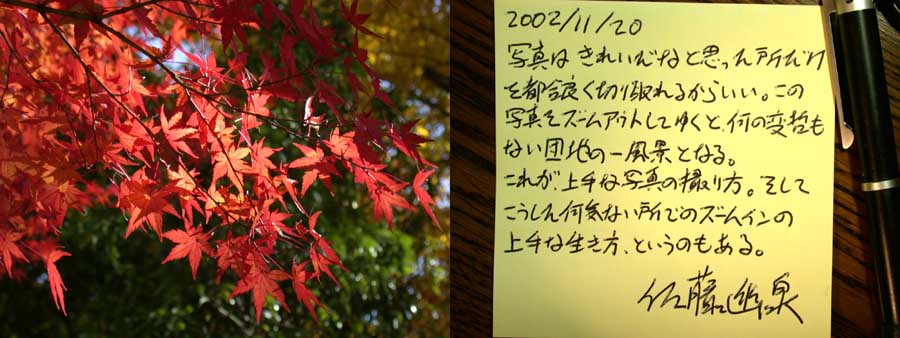 2002/11/20
写真は きれいだなと思った所だけ
を都合良く切り取れるからいい。この
写真をズームアウトしてゆくと、何の変哲も
ない団地の一風景となる。
これが上手な写真の撮り方。そして
こうした何気ない所でのズームインの
上手な生き方、というのもある。
佐藤